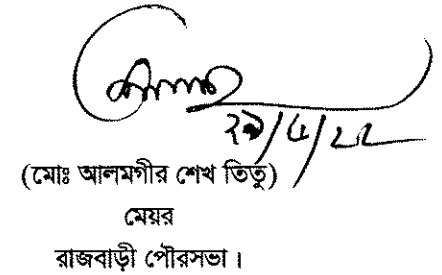 ২৯/৫/২২
(মোঃ আলমগীর শেখ তিতু)
মেয়র
রাজবাড়ী পৌরসভা।